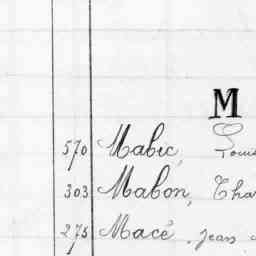 M
570 Mabic, Louis
303 Mabon, Cha
275 Macé, Jean